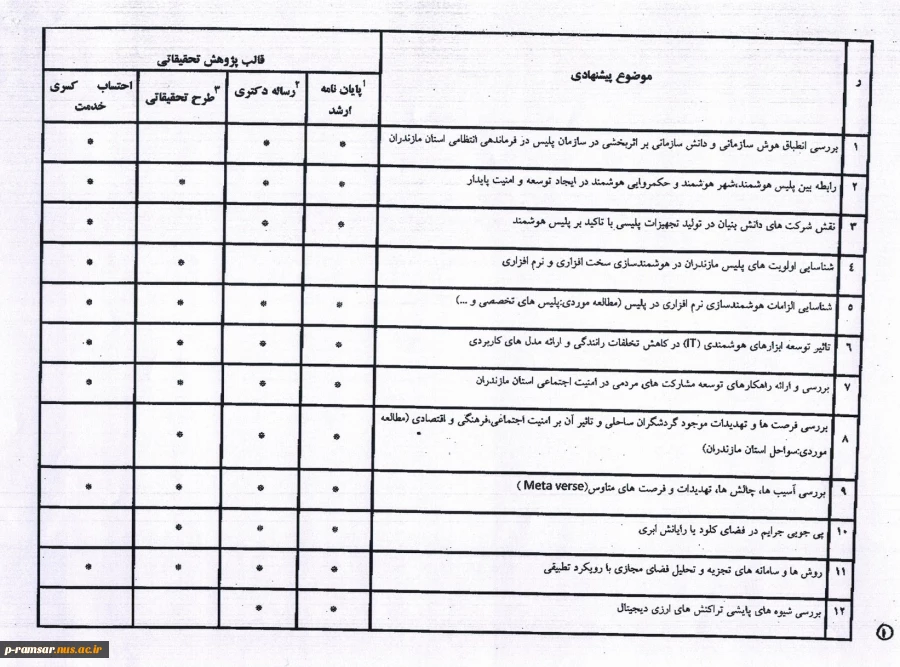 ر
موضوع پیشنهادی
قالب پژوهش تحقیقاتی
۱پایان نامه ارشد
۲رساله دکتری
۳طرح تحقیقاتی
احتساب کسری خدمت
۱ بررسی انطباق هوش سازمانی و دانش سازمانی بر اثربخشی در سازمان پلیس در فرماندهی انتظامی استان مازندران * * *
۲ رابطه بین پلیس هوشمند،شهر هوشمند و حکمروایی هوشمند در ایجاد توسعه و امنیت پایدار * * * *
۳ نقش شرکت های دانش بنیان در تولید تجهیزات پلیسی با تاکید بر پلیس هوشمند * * *
۴ شناسایی اولویت های پلیس مازندران در هوشمندسازی سخت افزاری و نرم افزاری * *
۵ شناسایی الزامات هوشمندسازی نرم افزاری در پلیس (مطالعه موردی:پلیس های تخصصی و ...) * * * *
۶ تاثیر توسعه ابزارهای هوشمندی (IT) در کاهش تخلفات رانندگی و ارائه مدل های کاربردی * * * *
۷ بررسی و ارائه راهکارهای توسعه مشارکت های مردمی در امنیت اجتماعی استان مازندران * * * *
۸ بررسی فرصت ها و تهدیدات موجود گردشگران ساحلی و تاثیر آن بر امنیت اجتماعی،فرهنگی و اقتصادی (مطالعه
موردی:سواحل استان مازندران) * * *
۹ بررسی آسیب ها، چالش ها، تهدیدات و فرصت های متاوس(Meta verse ) * * * *
۱۰ پی جویی جرایم در فضای کلود یا رایانش ابری * * *
۱۱ روش ها و سامانه های تجزیه و تحلیل فضای مجازی با رویکرد تطبیقی * * * *
۱۲ بررسی شیوه های پایشی تراکنش های ارزی دیجیتال * *
۱
p-ramsar.nus.ac.ir